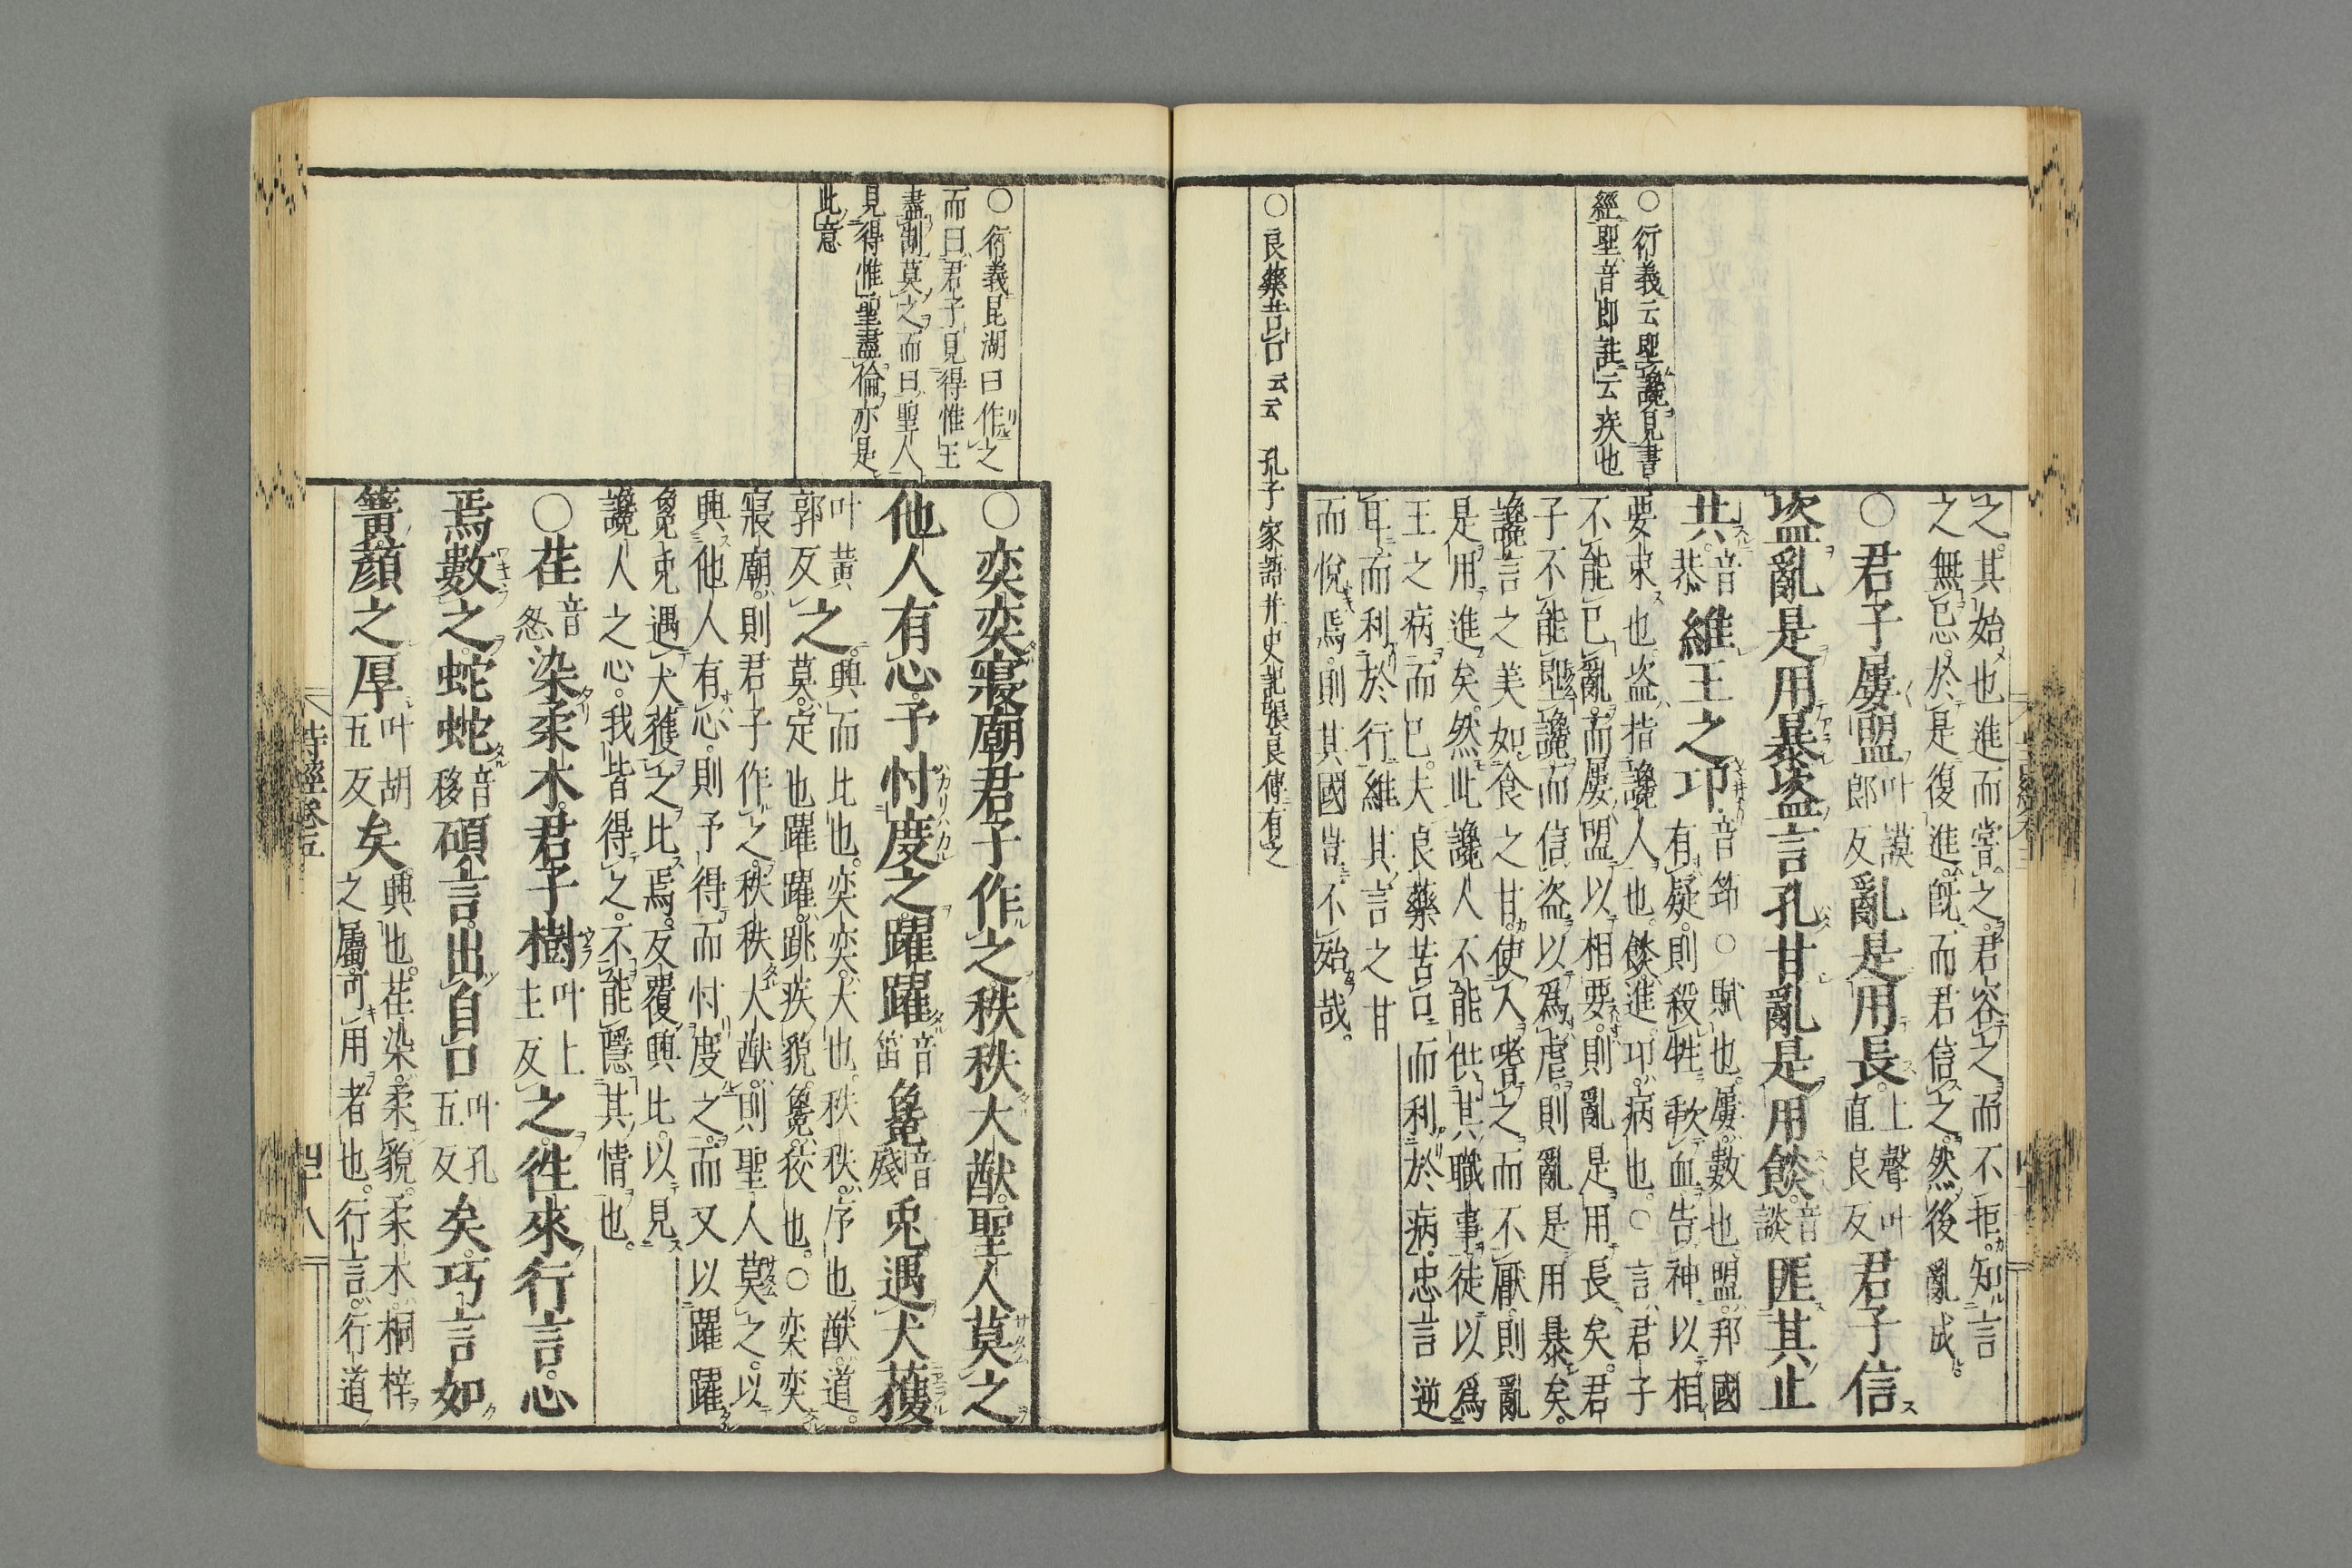 ○衍義云聖讒見書
經聖音即註云疾也
○良藥苦口云云 孔子家語并史記張良傳有之
之其始也進而嘗之君容之而不拒知言
之無忌於是復進既而君信之然後亂成
○君子屢盟叶謨郎反亂是用長上聲叶直良反君子信
盜亂是用暴盜言孔甘亂是用餤音談匪其止
共音恭維王之卭音笻○賦也屢數也盟邦國
有疑則殺牲歃血告神以相
要束也盜指讒人也餤進卭病也○言君子
不能已亂而屢盟以相要則亂是用長矣君
子不能聖讒而信盜以爲虐則亂是用暴矣
讒言之美如食之甘使人嗜之而不厭則亂
是用進矣然此讒人不能供其職事徒以爲
王之病而已夫良藥苦口而利於病忠言逆
耳而利於行維其言之甘
而悅焉則其國豈不殆哉
○衍義昆湖曰作之
而曰君子見得惟王
盡制莫之而曰聖人
見得惟聖盡倫亦是
此意
○奕奕寢廟君子作之秩秩大猷聖人莫之
他人有心予忖度之躍躍音笛毚音殘兎遇犬獲
叶黃郭反之興而比也奕奕大也秩秩序也猷道
莫定也躍躍跳疾貌毚狡也○奕奕
寢廟則君子作之秩秩大猷則聖人莫之以
興他人有心則予得而忖度之而又以躍躍
毚兎遇犬獲之比焉反覆興比以見
讒人之心我皆得之不能隱其情也
○荏音忩染柔木君子樹叶上主反之徃來行言心
焉數之蛇蛇音移碩言出自口叶孔五反矣巧言如
簧顏之厚叶胡五反矣興也荏染柔貌柔木桐梓
之屬可用者也行言行道
詩經卷五
四十八